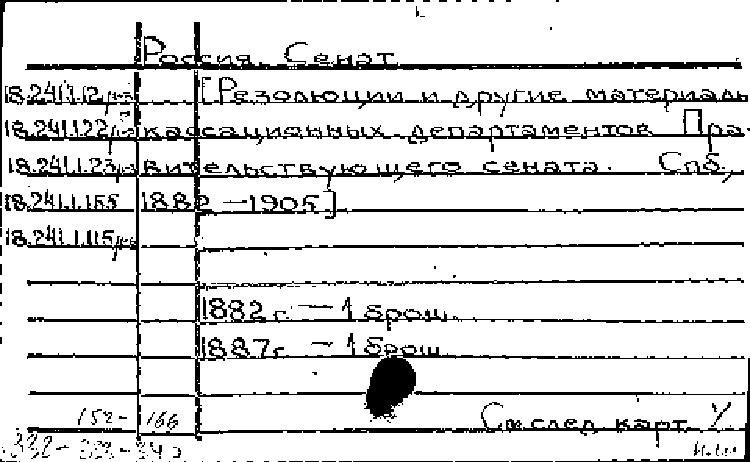 Россия. Сенат
18.241.1.12 [Резолюции и другие материалы
18.241.1.22 кассационных департаментов Пра-
18.241.1.23 вительствующего сената. Спб,
18.241.1.155 1882 – 1905]
18.241.1.115
1882 г. – 1 брош.
1887 г. – 1 брош.
См. след. карт. %
152 – 166